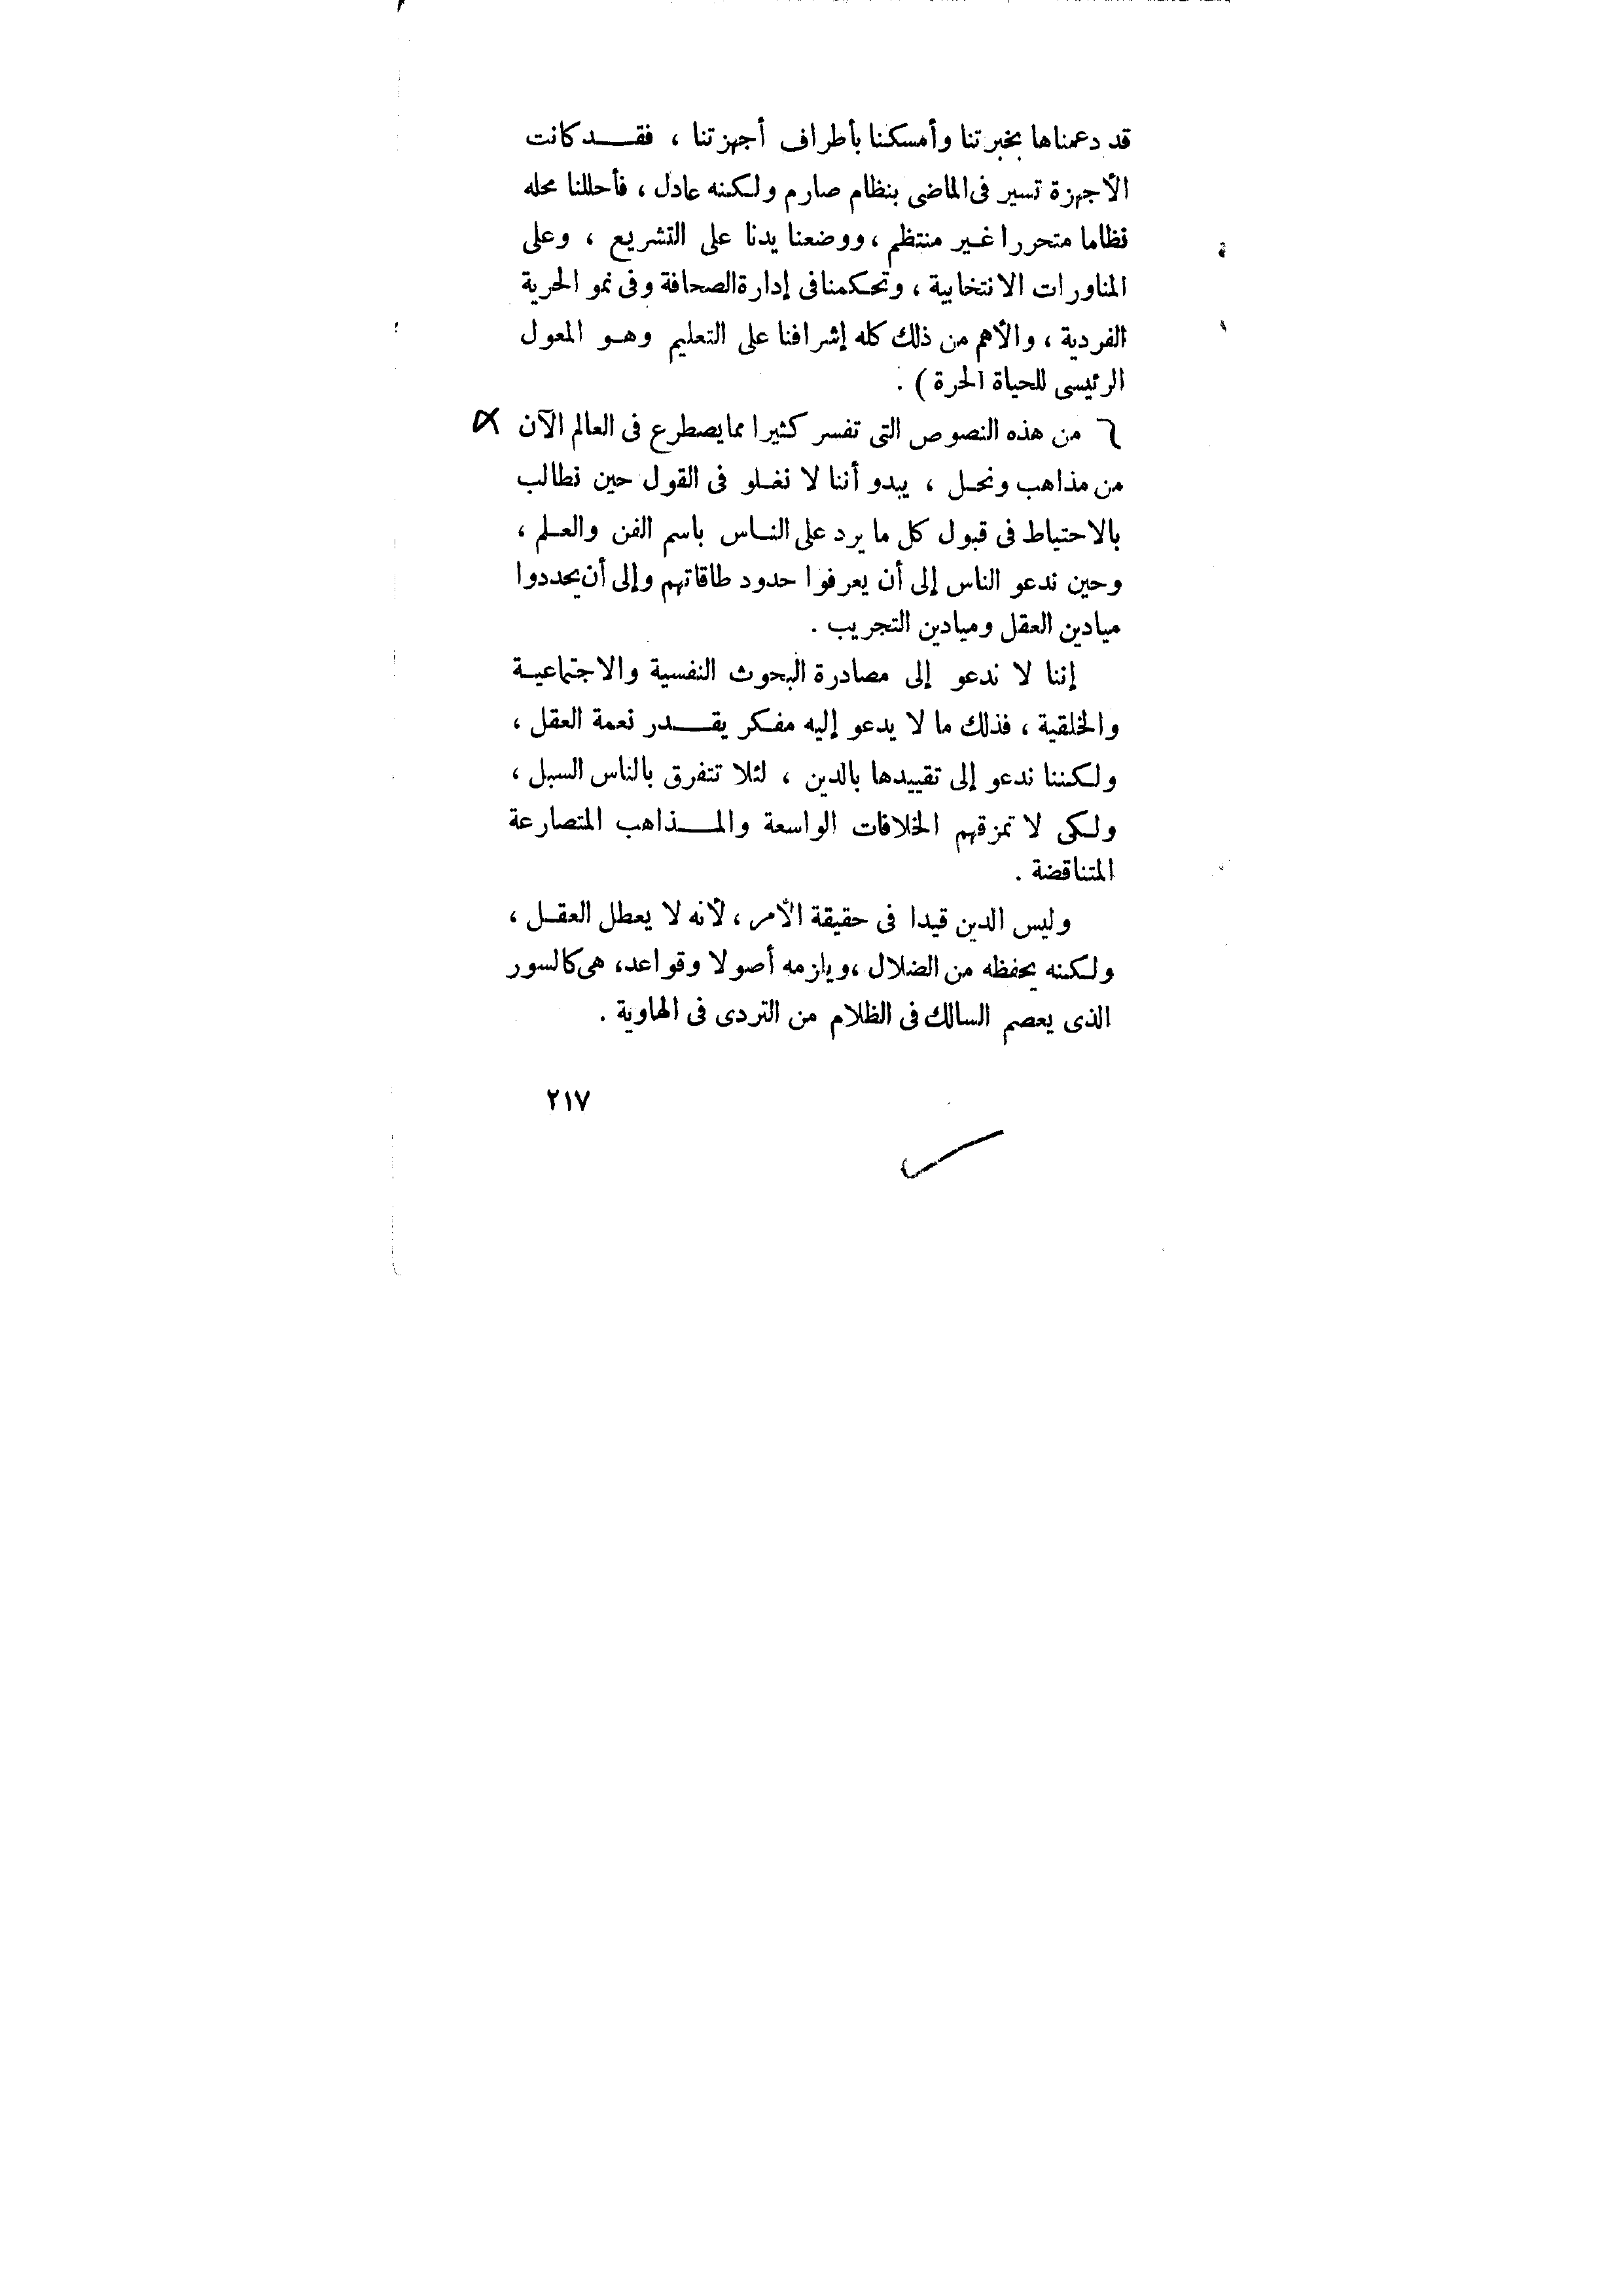 قد دعمناها بخبرتنا وأمسكنا بأطراف أجهزتنا ، فقد كانت
الأجهزة تسير فى الماضى بنظام صارم ولكنه عادل ، فأحللنا محله
نظاما متحررا غير منتظم ، ووضعنا يدنا على التشريع ، وعلى
المناورات الانتخابية ، وتحكمنا فى إدارة الصحافة وفى نمو الحرية
الفردية ، والأهم من ذلك كله إشرافنا على التعليم وهو المعول
الرئيسى للحياة الحرة ) .
من هذه النصوص التى تفسر كثيرا مما يصطرع فى العالم الآن
من مذاهب ونحل ، يبدو أننا لا نغلو فى القول حين نطالب
بالاحتياط فى قبول كل ما يرد على الناس باسم الفن والعلم ،
وحين ندعو الناس إلى أن يعرفوا حدود طاقاتهم وإلى أن يحددوا
ميادين العقل وميادين التجريب .
إننا لا ندعو إلى مصادرة البحوث النفسية والاجتماعية
والخلقية ، فذلك ما لا يدعو إليه مفكر يقدر نعمة العقل ،
ولكننا ندعو إلى تقييدها بالدين ، لئلا تتفرق بالناس السبل ،
ولكى لا تمزقهم الخلافات الواسعة والمذاهب المتصارعة
المتناقضة .
وليس الدين قيدا فى حقيقة الأمر ، لأنه لا يعطل العقل ،
ولكنه يحفظه من الضلال ، ويلزمه أصولا وقواعد ، هى كالسور
الذى يعصم السالك فى الظلام من التردى فى الهاوية .
٢١٧